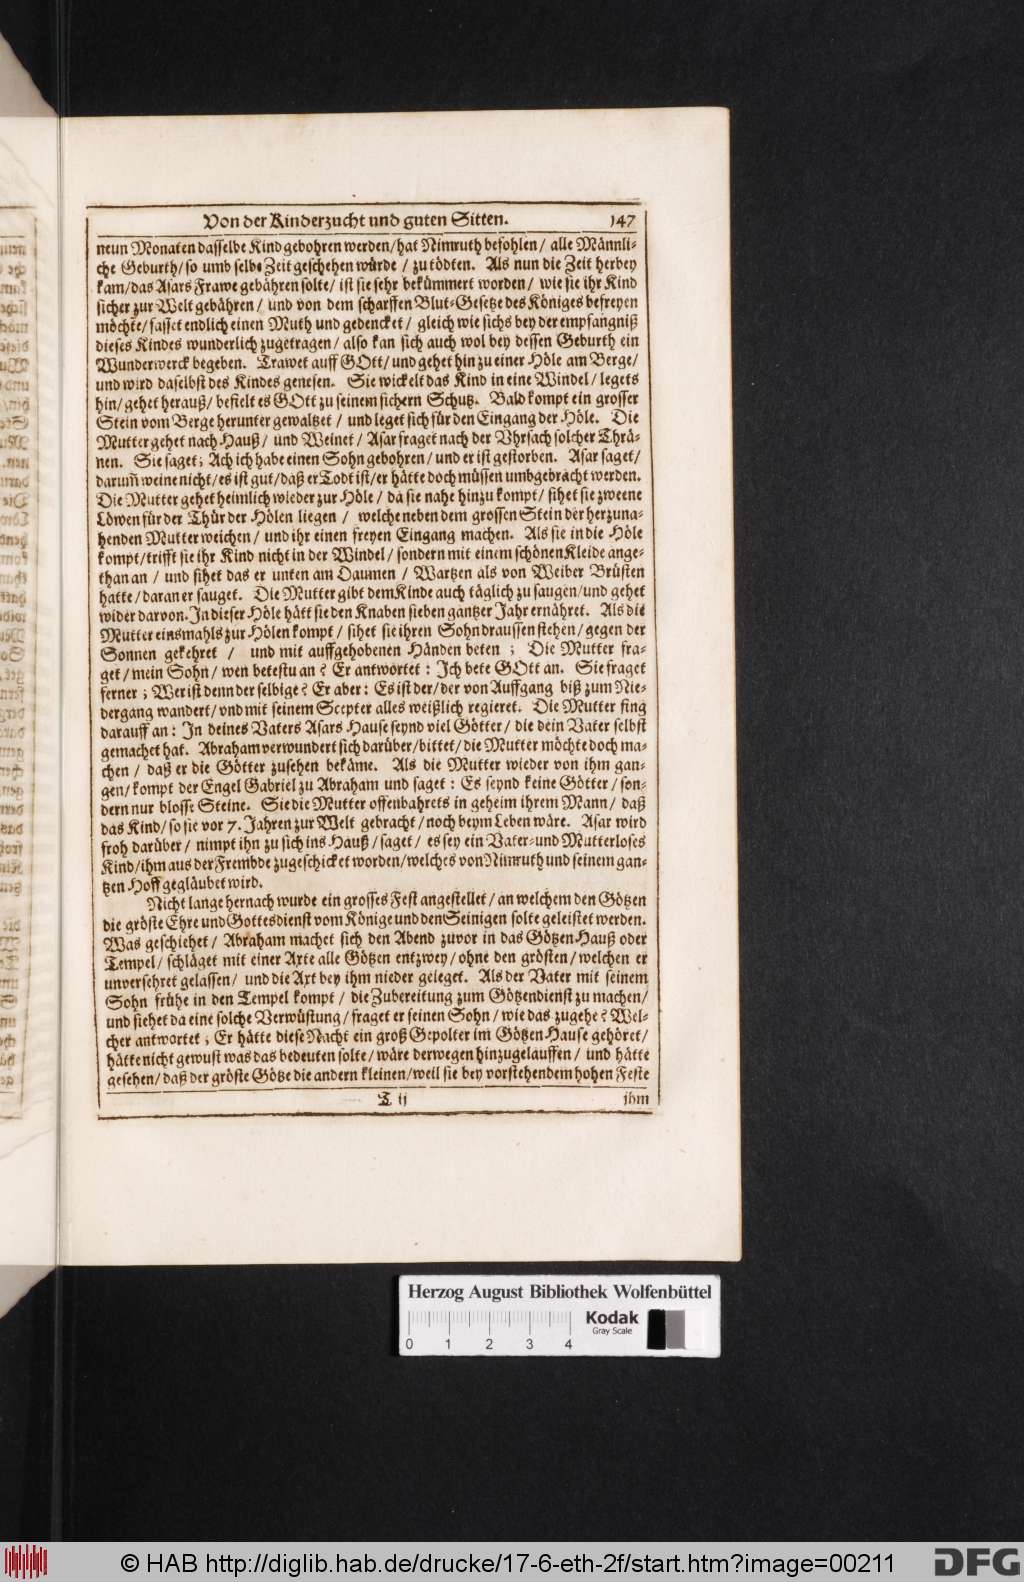 Von der Kinderzucht und guten Sitten. 147
neun Monaten dasselbe Kind gebohren werden/hat Nimruth befohlen/ alle Männli-
che Geburth/so umb selbe Zeit geschehen würde / zu tödten. Als nun die Zeit herbey
kam/das Asars Frawe gebähren solte/ ist sie sehr bekümmert worden/ wie sie ihr Kind
sicher zur Welt gebähren/ und von dem scharffen Blut-Gesetze des Königes befreyen
möchte/fasset endlich einen Muth und gedencket/ gleich wie sichs bey der empfängniß
dieses Kindes wunderlich zugetragen/ also kan sich auch wol bey dessen Geburth ein
Wunderwerck begeben. Trawet auff GOtt/und gehet hin zu einer Höle am Berge/
und wird daselbst des Kindes genesen. Sie wickelt das Kind in eine Windel/ legets
hin/gehet herauß/ befielt es GOtt zu seinem sichern Schutz. Bald kompt ein grosser
Stein vom Berge herunter gewaltzet/ und leget sich für den Eingang der Höle. Die
Mutter gehet nach Hauß/ und Weinet/ Asar fraget nach der Vhrsach solcher Thrä-
nen. Sie saget; Ach ich habe einen Sohn gebohren/und er ist gestorben. Asar saget/
darum̃ weine nicht/es ist gut/daß er Todt ist/er hätte doch müssen umbgebracht werden.
Die Mutter gehet heimlich wieder zur Höle/ da sie nahe hinzu kompt/ sihet sie zweene
Löwen für der Thür der Hölen liegen / welche neben dem grossen Stein der herzuna-
henden Mutter weichen/ und ihr einen freyen Eingang machen. Als sie in die Höle
kompt/trifft sie ihr Kind nicht in der Windel/sondern mit einem schönen Kleide ange-
than an / und sihet das er unten am Daumen / Wartzen als von Weiber Brüsten
hatte/daran er sauget. Die Mutter gibt dem Kinde auch täglich zu saugen/und gehet
wider darvon. In dieser Höle hätt sie den Knaben sieben gantzer Jahr ernähret. Als die
Mutter einsmahls zur Hölen kompt/ sihet sie ihren Sohn draussen stehen/gegen der
Sonnen gekehret / und mit auffgehobenen Händen beten ; Die Mutter fra-
get/mein Sohn/ wen betestu an? Er antwortet: Ich bete GOtt an. Sie fraget
ferner; Wer ist denn der selbige? Er aber: Es ist der/der von Auffgang biß zum Nie-
dergang wandert/vnd mit seinem Scepter alles weißlich regieret. Die Mutter fing
darauff an: In deines Vaters Asars Hause seynd viel Götter/ die dein Vater selbst
gemachet hat. Abraham verwundert sich darüber/bittet/die Mutter möchte doch ma-
chen / daß er die Götter zusehen bekäme. Als die Mutter wieder von ihm gan-
gen/kompt der Engel Gabriel zu Abraham und saget: Es seynd keine Götter/son-
dern nur blosse Steine. Sie die Mutter offenbahrets in geheim ihrem Mann/ daß
das Kind/so sie vor 7. Jahren zur Welt gebracht/noch beym Leben wäre. Asar wird
froh darüber/ nimpt ihn zu sich ins Hauß/saget/ es sey ein Vater- und Mutterloses
Kind/ihm aus der Frembde zugeschicket worden/welches von Nimruth und seinem gan-
tzen Hoff gegläubet wird.
Nicht lange hernach wurde ein grosses Fest angestellet/an welchem den Götzen
die gröste Ehre und Gottesdienst vom Könige und den Seinigen solte geleistet werden.
Was geschiehet/ Abraham machet sich den Abend zuvor in das Götzen Hauß oder
Tempel/ schläget mit einer Axte alle Götzen entzwey/ohne den grösten/welchen er
unversehret gelassen/ und die Axt bey ihm nieder geleget. Als der Vater mit seinem
Sohn frühe in den Tempel kompt/ die Zubereitung zum Götzendienst zu machen/
und siehet da eine solche Verwüstung/fraget er seinen Sohn/wie das zugehe? Wel-
cher antwortet; Er hätte diese Nacht ein groß Gepolter im Götzen Hause gehöret/
hätte nicht gewust was das bedeuten solte/wäre derwegen hinzugelauffen/ und hätte
gesehen/daß der gröste Götze die andern kleinen/weil sie bey vorstehendem hohen Feste
T ij ihm
Herzog August Bibliothek Wolfenbüttel
Kodak
Gray Scale
0 1 2 3 4
© HAB http://diglib.hab.de/drucke/17-6-eth-2f/start.htm?image=00211
DFG